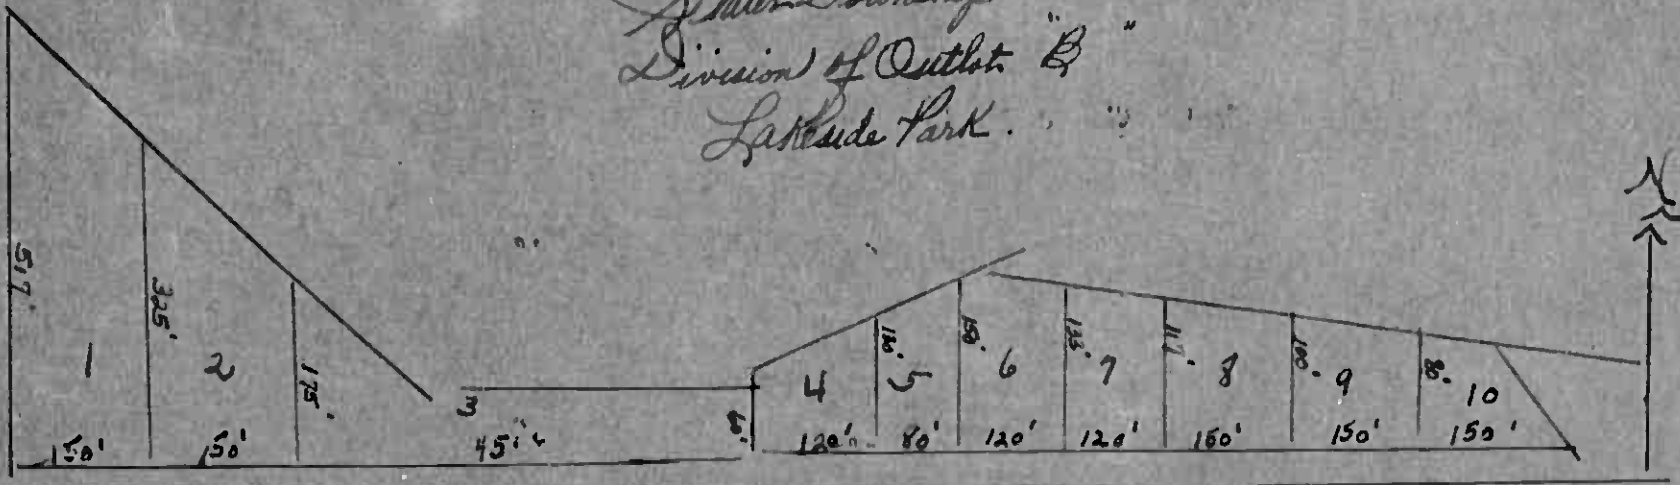 Division of Outlots "B"
Lakeside Park.
N
517'
325'
175'
1
2
3
4
5
6
7
8
9
10
60'
150'
133'
117'
100'
150'
150'
120'
80'
120'
120'
150'
150'